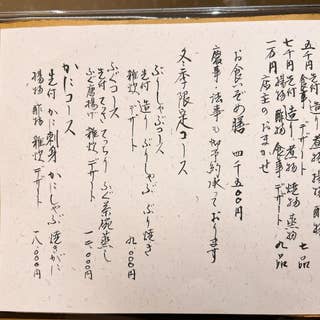 五千円 先付 造り 煮物 揚物 酢物
食事 デザート 七品
七千円 先付 造り 煮物 焼物 蒸物
揚物 酢物 食事 デザート 九品
一万円 店主のおまかせ
お食いぞめ膳 四千五百円
慶事・法事も御予約承ております
冬季限定コース
ぶりしゃぶコース
先付 造り ぶりしゃぶ ぶり焼き
酢物 雑炊 デザート 九〇〇〇円
ふぐコース
先付 てっさ てっちり ふぐ茶碗蒸し
ふぐ唐揚げ 雑炊 デザート
かにコース
先付 かに刺身 かにしゃぶ 焼きがに
揚物 酢物 雑炊 デザート